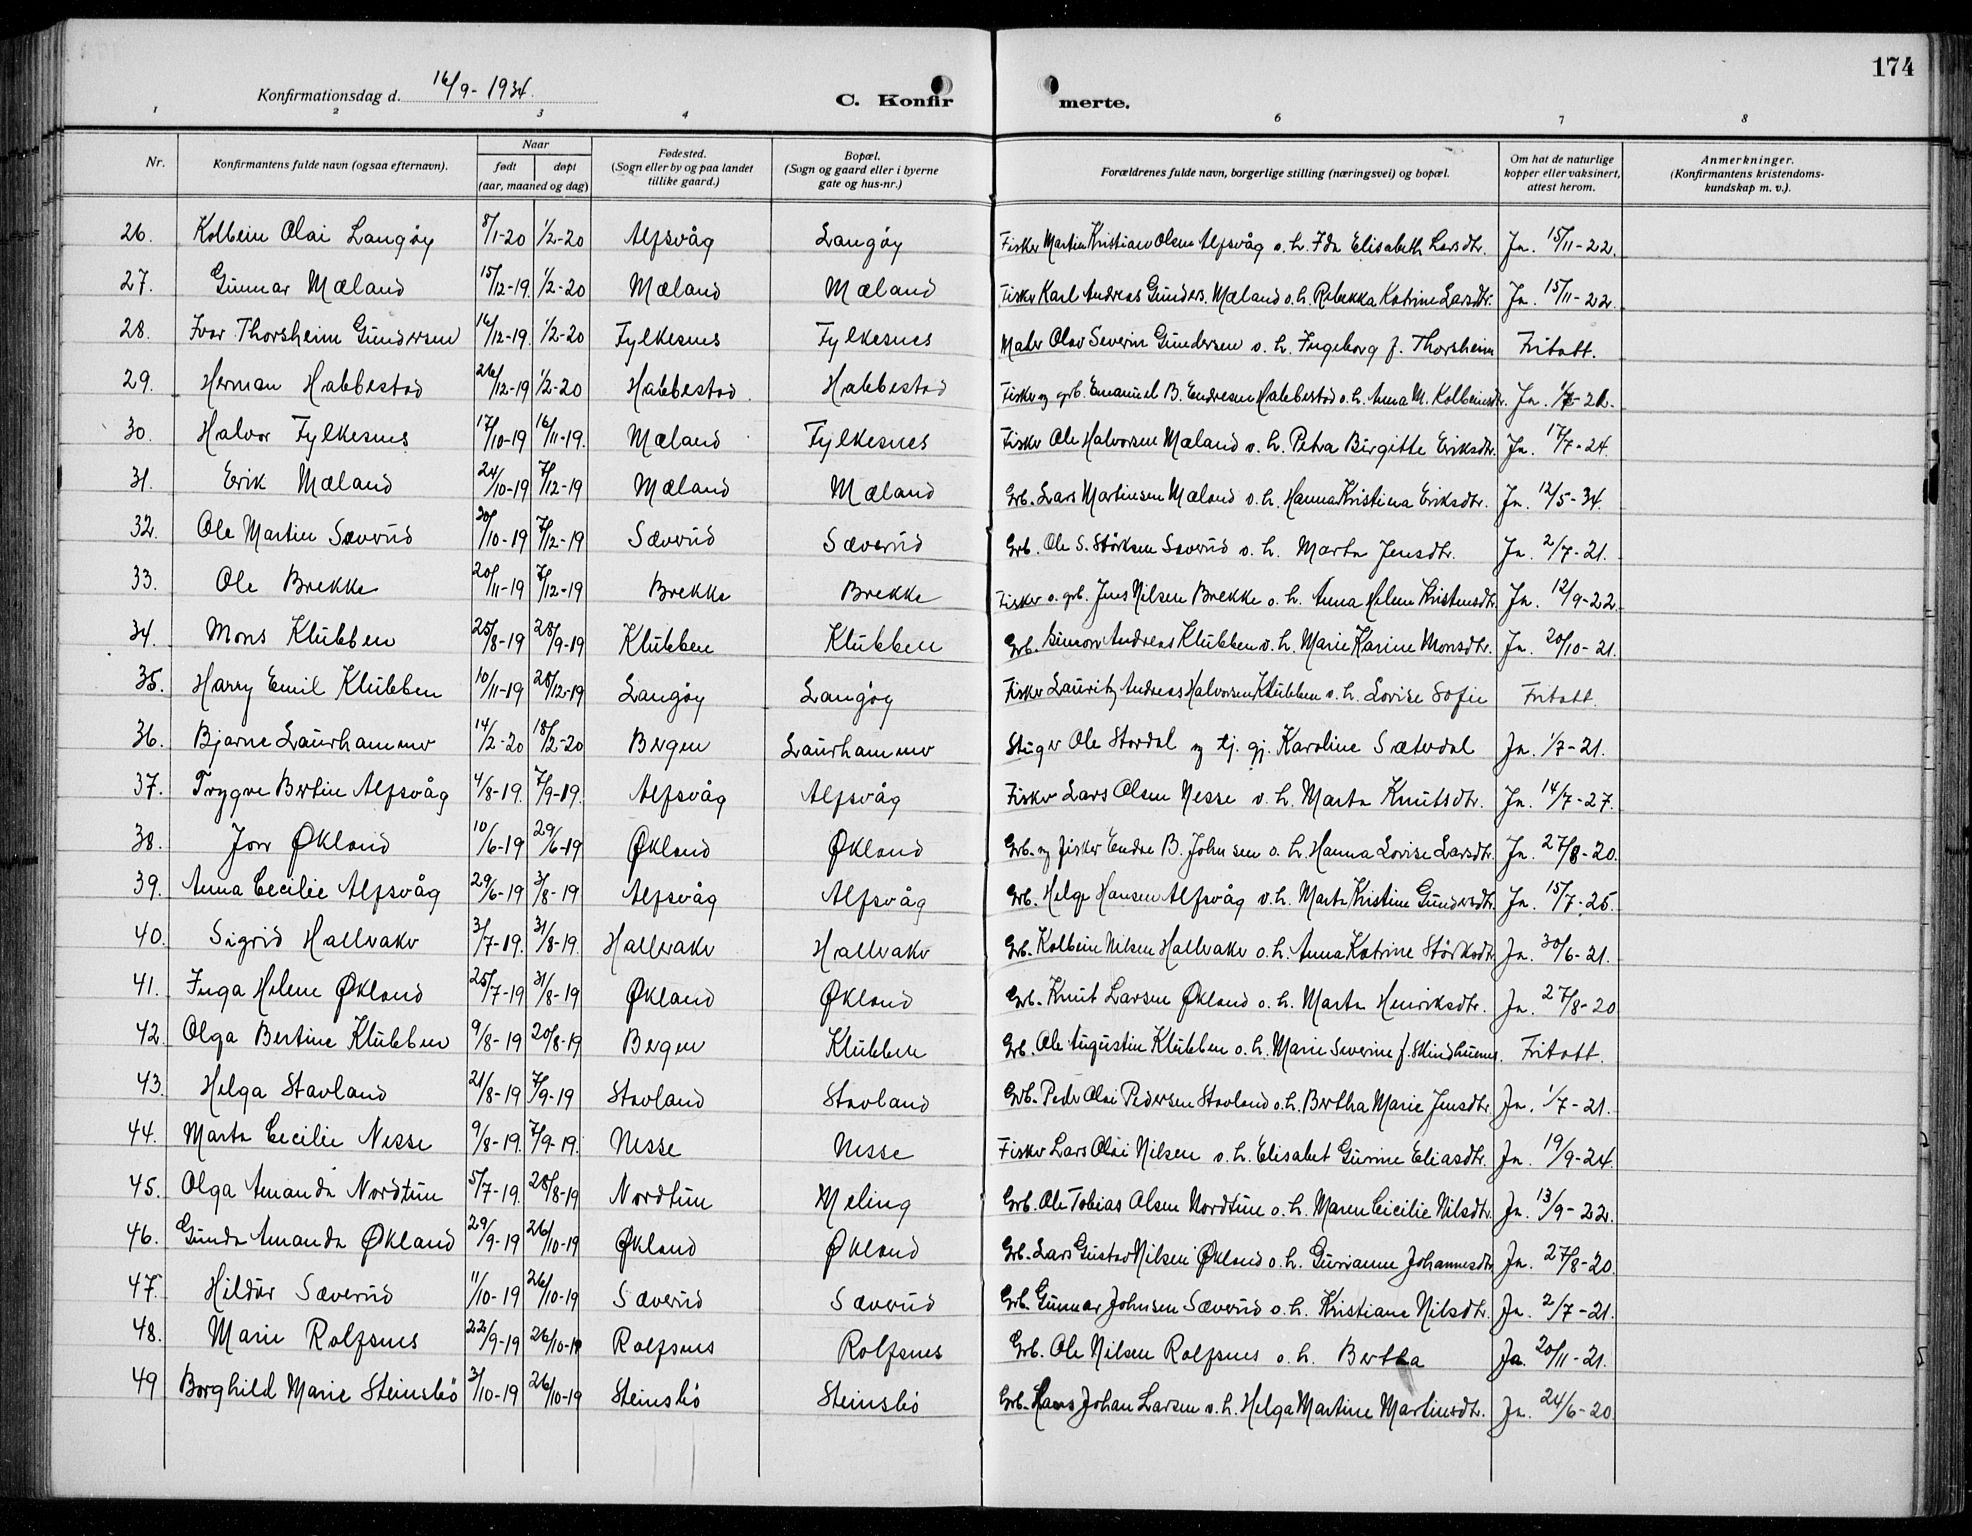 174
Konfirmationsdag d. 16/9-1934.
C. Konfirmerte.
1 2 3 4 6 7 8
Nr. Konfirmantens fulde navn (ogsaa efternavn). Naar født døpt (aar, maaned og dag) Fødested. (Sogn eller by og paa landet tillike gaard.) Bopæl. (Sogn og gaard eller i byerne gate og hus-nr.) Forældrenes fulde navn, borgerlige stilling (næringsvei) og bopæl. Om hat de naturlige kopper eller vaksinert, attest herom. Anmerkninger. (Konfirmantens kristendomskundskap m. v.).
26. Kolbein Olai Langøy 8/1-20 1/2-20 Alfsvåg Langøy Fisker Martin Kristian Olsen Alfsvåg o. h. Ida Elisabeth Larsdtr. Ja. 15/11-22.
27. Gunnar Mæland 15/12-19. 1/2-20 Mæland Mæland Fisker Karl Andreas Gunders. Mæland o. h. Rebekka Katrine Larsdtr. Ja. 15/11-22.
28. Ivar Thorsheim Gundersen 16/12-19. 1/2-20 Fylkesnes Fylkesnes Maler Olav Severin Gundersen o. h. Ingeborg f. Thorsheim Fritatt.
29. Herman Habbestad 26/12-19 1/2-20 Habbestad. Habbestad Fisker og grb. Emanuel B. Endresen Habbestad o. h. Anna M. Kolbeinsdtr. Ja. 1/7-21.
30. Halvor Fylkesnes 17/10-19 16/11-19. Mæland Fylkesnes Fisker Ole Halvorsen Mæland o. h. Petra Birgitte Eriksdtr. Ja. 17/7-24.
31. Erik Mæland 24/10-19 7/12-19 Mæland Mæland Grb. Lars Martinsen Mæland o. h. Hanna Kristina Eriksdtr. Ja. 12/5-34.
32. Ole Martin Sæverud 20/10-19 7/12-19 Sæverud Sæverud Grb. Ole S. Størksen Sæverud o. h. Marta Jensdtr. Ja. 2/7-21.
33. Ole Brekke 20/11-19 7/12-19 Brekke Brekke Fisker o. grb. Jens Nilsen Brekke o. h. Anna Helene Kristensdtr. Ja. 12/9-22.
34. Mons Klubben 25/8-19 28/9-19 Klubben Klubben Grb. Simon Andreas Klubben o. h. Marie Karine Monsdtr. Ja. 20/10-21.
35. Harry Emil Klubben 10/11-19 28/12-19 Langøy Langøy Fisker Lauritz Andreas Halvorsen Klubben o. h. Lovise Sofie Fritatt.
36. Bjarne Laurhammer 14/2-20 18/2-20 Bergen Laurhammer Stuer Ole Stordal og tj. gj. Karoline Sæterdal Ja. 1/7-21.
37. Trygve Bertin Alfsvåg 4/8-19. 7/9-19. Alfsvåg Alfsvåg Fisker Lars Olsen Nesse o. h. Marta Knutsdtr. Ja. 14/7-27.
38. Jon Økland 10/6-19 29/6-19 Økland Økland Grb. og fisker Endre B. Johnsen o. h. Hanna Lovise Larsdtr. Ja. 27/8-20.
39. Anna Cecilie Alfsvåg 29/6-19 3/8-19 Alfsvåg Alfsvåg Grb. Helge Hansen Alfsvåg o. h. Marta Kristine Gundersdtr. Ja. 15/7-25.
40. Sigrid Hallvaker 3/7-19. 31/8-19. Hallvaker Hallvaker Grb. Kolbein Nilsen Hallvaker o. h. Anna Katrine Størksdtr. Ja. 30/6-21.
41. Inga Helene Økland 25/7-19 31/8-19 Økland Økland Grb. Knut Larsen Økland o. h. Marta Henriksdtr. Ja. 27/8-20
42. Olga Bertine Klubben 9/8-19 20/8-19 Bergen Klubben Grb. Ole Augustin Klubben o. h. Marie Severine f. Fritatt.
43. Helga Stavland 21/8-19 7/9-19 Stavland Stavland Grb. Peder Olai Pedersen Stavland o. h. Bertha Marie Jensdtr. Ja. 1/7-21.
44. Marta Cecilie Nesse 9/8-19. 7/9-19. Nesse Nesse Fisker Lars Olai Nilsen o. h. Elisabet Gurine Eliasdtr. Ja. 19/9-24.
45. Olga Amanda Nordtun 5/7-19. 28/8-19 Nordtun Meling Grb. Ole Tobias Olsen Nordtun o. h. Maren Cicilie Nilsdtr. Ja. 13/9-22.
46. Gunda Amanda Økland 29/9-19 26/10-19 Økland Økland Grb. Lars Gustav Nilsen Økland o. h. Gurianne Johannesdtr. Ja. 27/8-20.
47. Hildur Sæverud 11/10-19 26/10-19 Sæverud Sæverud Grb. Gunnar Johnsen Sæverud o. h. Kristiane Nilsdtr. Ja. 2/7-21.
48. Marie Rolfsnes 22/9-19 26/10-19 Rolfsnes Rolfsnes Grb. Ole Nilsen Rolfsnes o. h. Bertha Ja. 20/11-21.
49 Borghild Marie Steinsbö 3/10-19 26/10-19 Steinsbö Steinsbö Grb. Hans Johan Larsen o. h. Helga Martine Martinsdtr. Ja. 24/6-20.